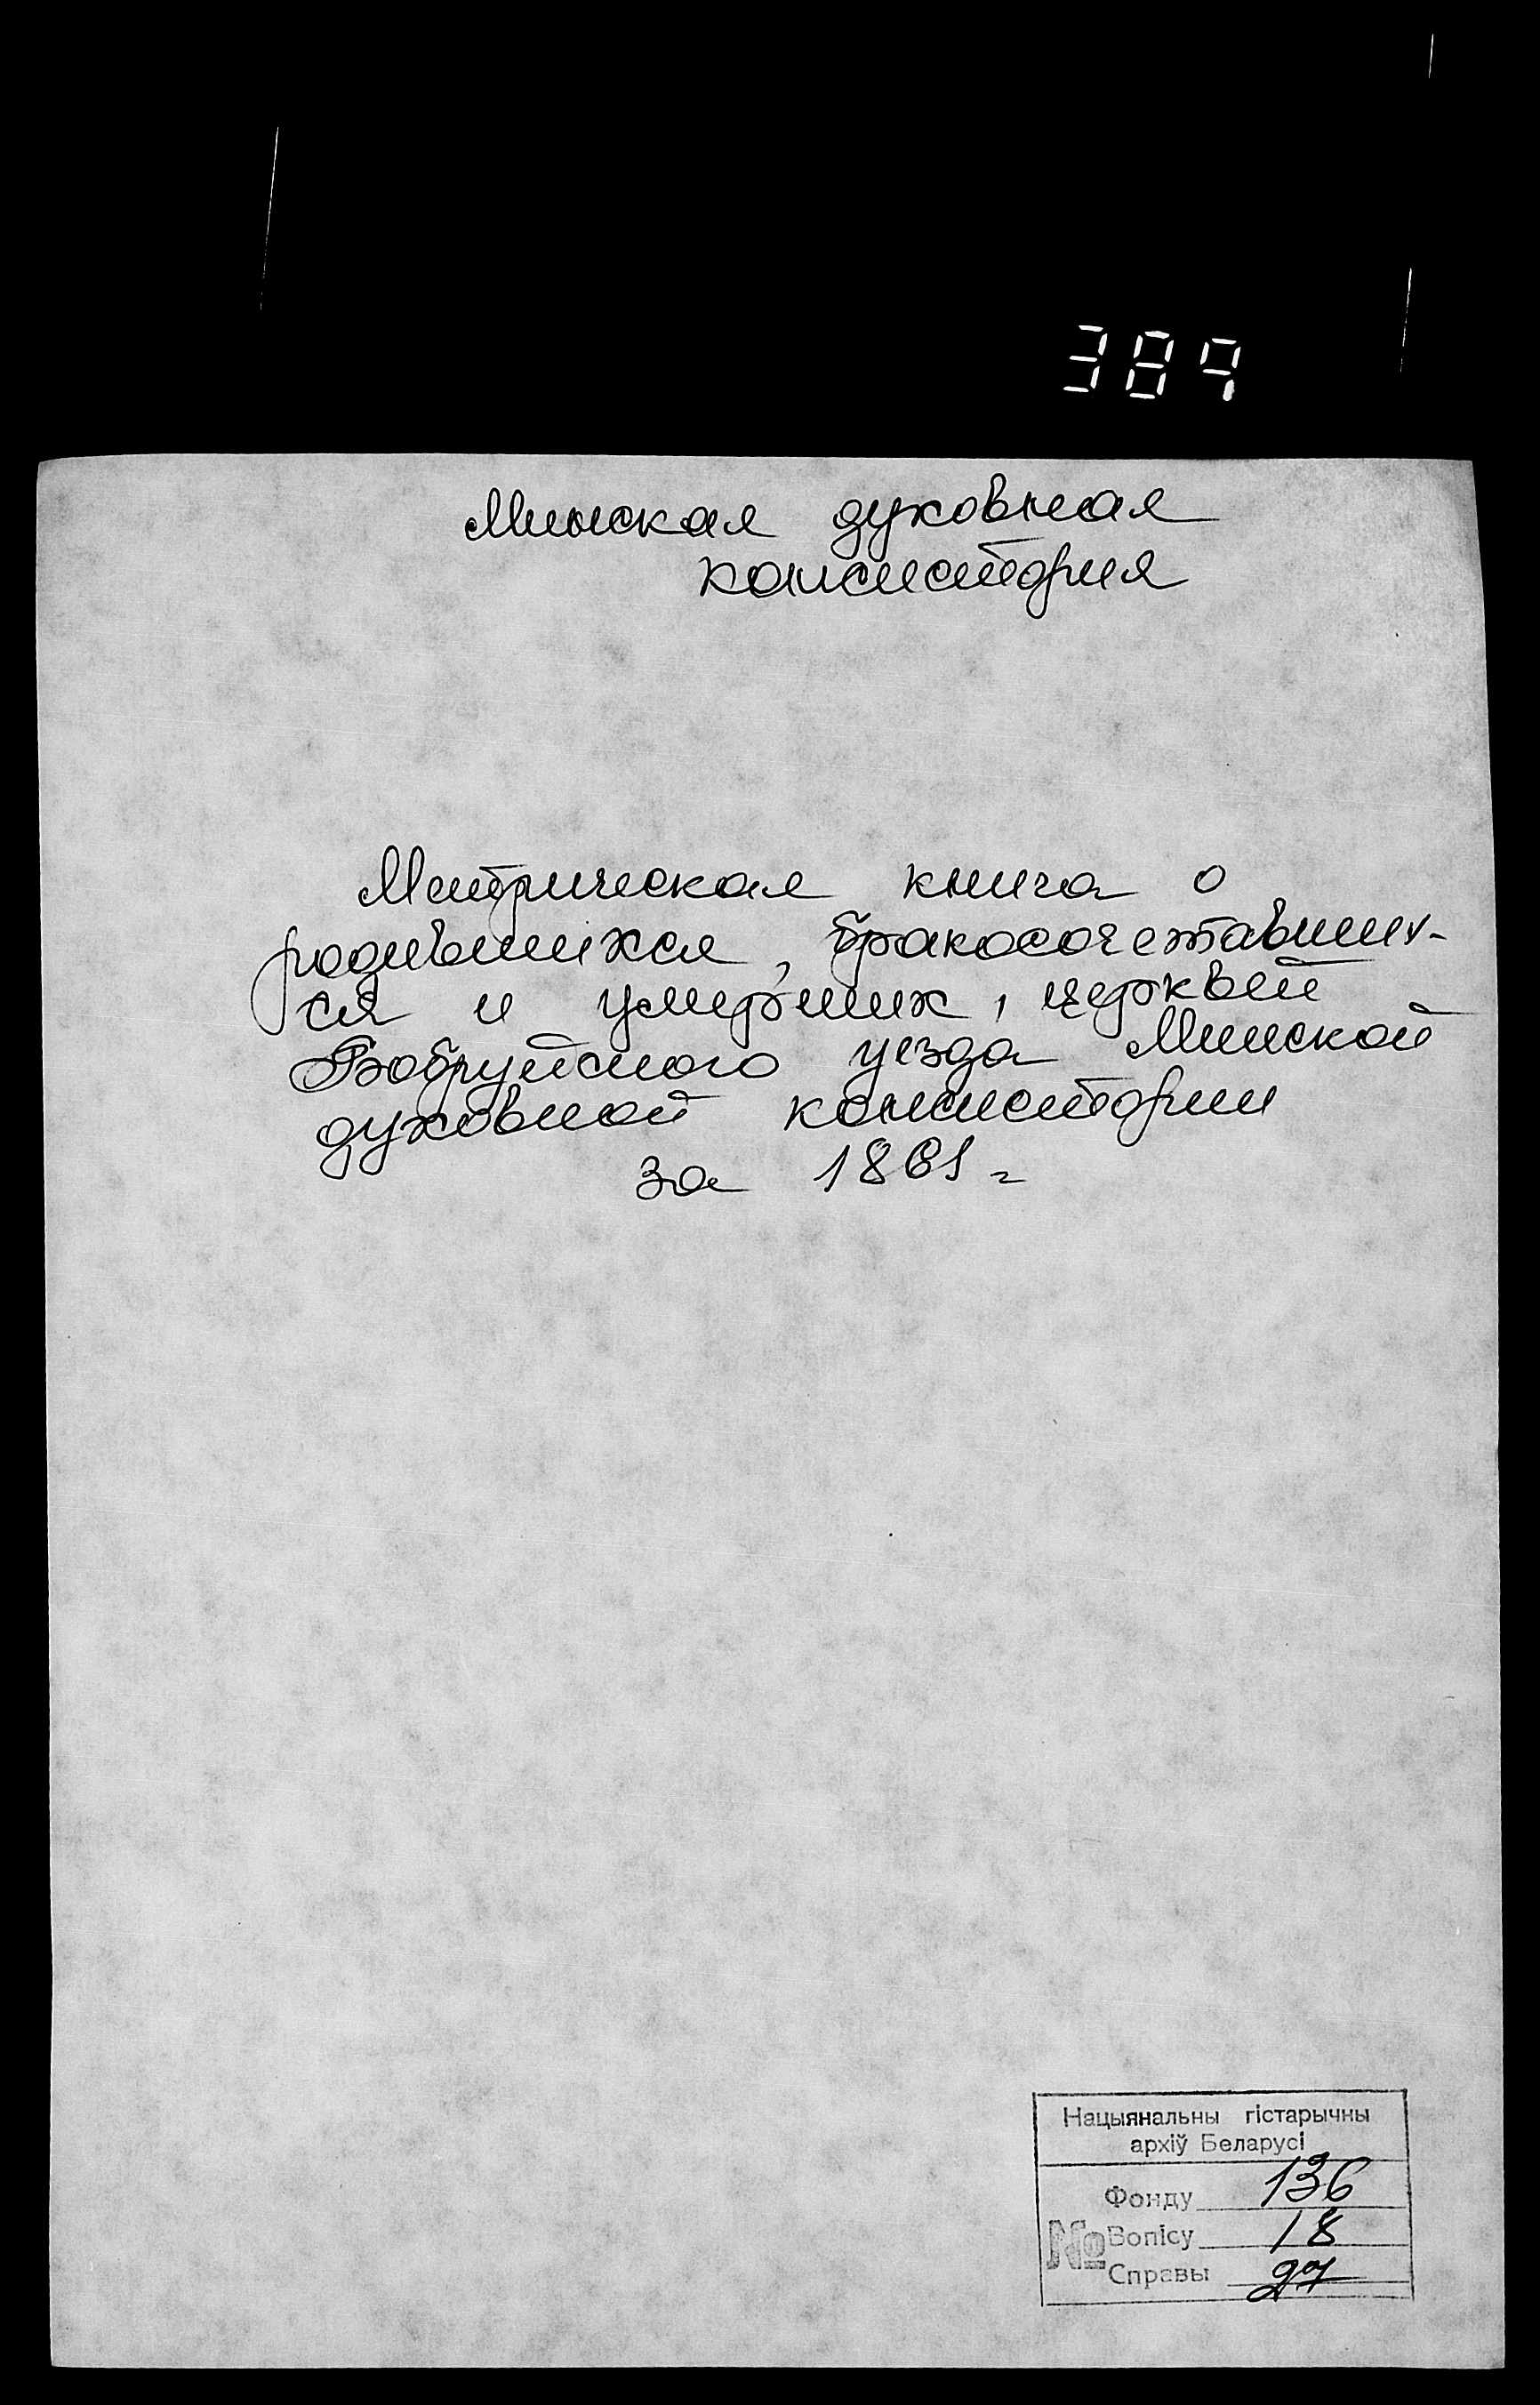 389
Минская духовная
консистория
Метрическая книга о
родившихся, бракосочетавших-
ся и умерших, церквей
Бобруйского уезда Минской
духовной консистории
за 1861 г
Нацыянальны гістарычны
архіў Беларусі
Фонду 136
№ Вопісу 18
Справы 27